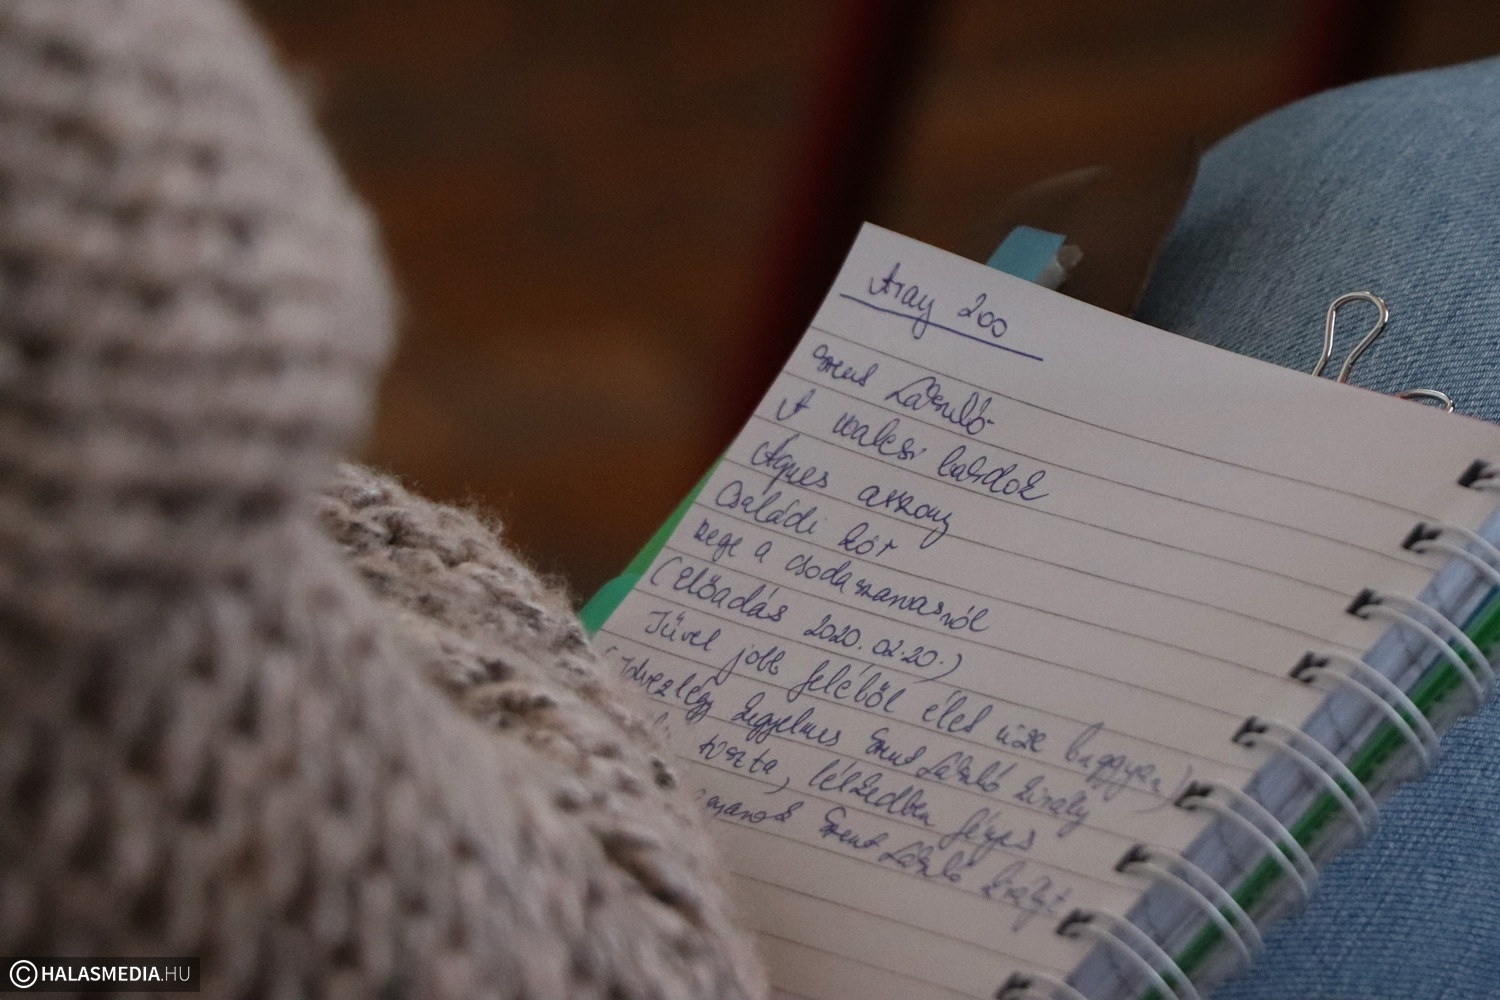 Arany 200
Szent László
A walesi bárdok
Ágnes asszony
Családi kör
Rege a csodaszarvasról
(Előadás 2020.02.20.)
Tüvel jobb feléből élet íze buggyan)
kegyelmes Szent László király
tiszta, lélekedben fényes
Szent László
© HALASMEDIA.HU